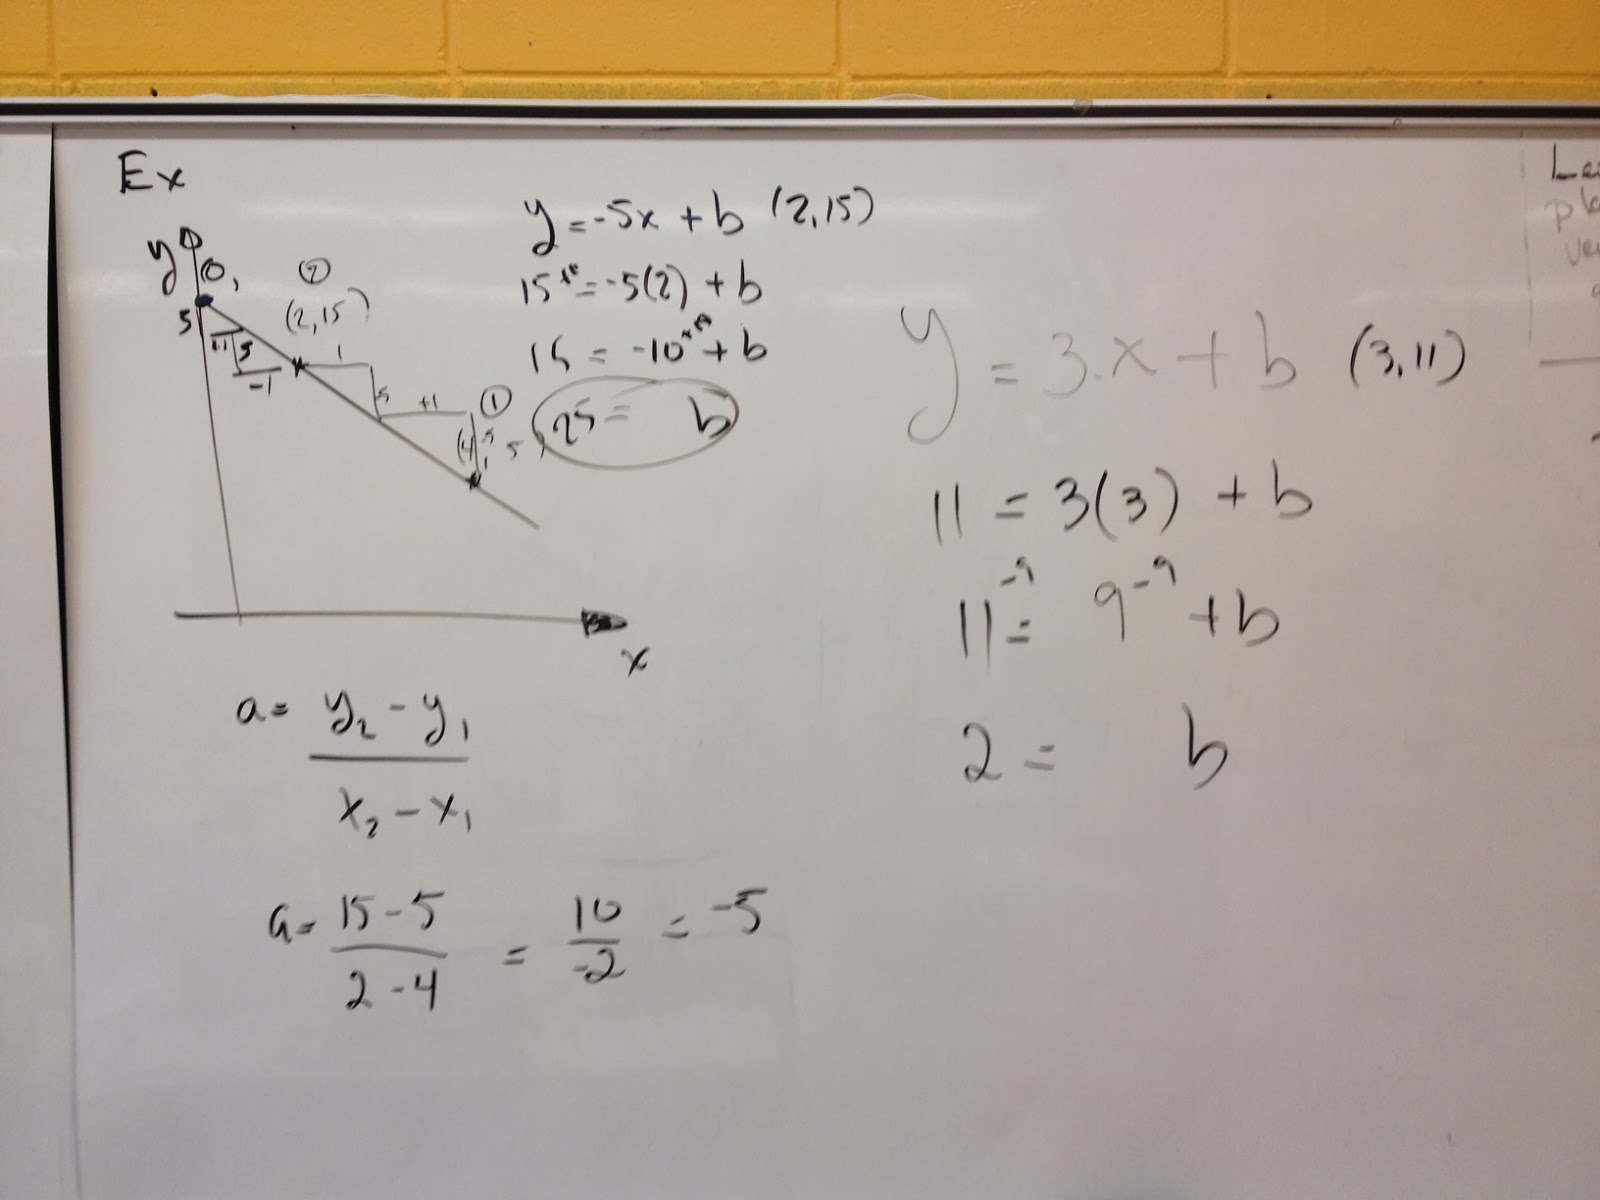 Ex
y
0,
5
②
(2,15)
1
5
-1
5
+1
①
(4,
5
x
y = -5x + b (2,15)
15⁺¹⁰ = -5(2) + b
15 = -10⁺¹⁰ + b
25 = b
a = y₂ - y₁
x₂ - x₁
a = 15 - 5 = 10 = -5
2 - 4 -2
y = 3.x + b (3,11)
11 = 3(3) + b
11⁻⁹ = 9⁻⁹ + b
2 = b